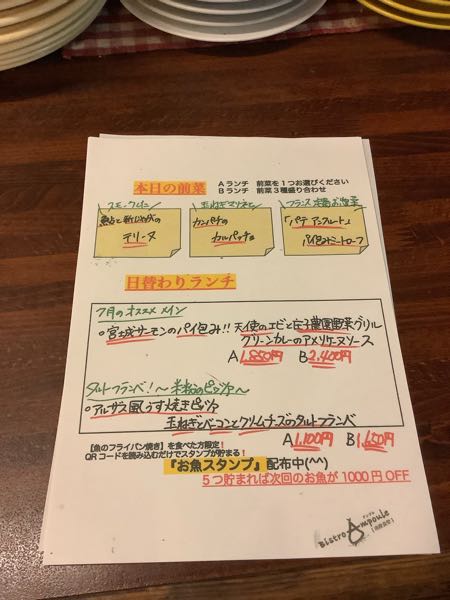 本日の前菜
Aランチ 前菜を1つお選びください
Bランチ 前菜3種盛り合わせ
テリーヌ
カンパチの
カルパッチョ
「パテアンクルート」
パイ包みミートローフ
日替わりランチ
7月のオススメ メイン
宮城サーモンのパイ包み!! 天使のエビと庄子農園野菜グリル
グリーンカレーのアメリケーヌソース
A 1,850円 B 2,400円
タルトフランベ!〜本格のピッツァ〜
アルザス風うす焼きピッツァ
玉ねぎベーコンとクリームチーズのタルトフランベ
A 1,100円 B 1,650円
【魚のフライパン焼き】を食べた方限定!
QRコードを読み込むだけでスタンプが貯まる!
『お魚スタンプ』配布中(^^)
5つ貯まれば次回のお魚が1000円OFF
Bistro Ampoule